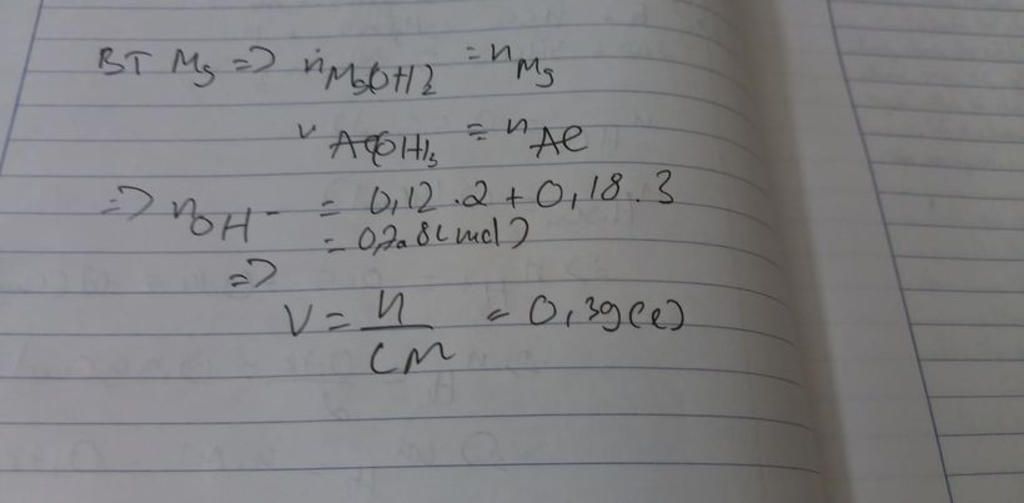 BT Mg => nMg(OH)2 = nMg
nAl(OH)3 = nAl
=> nOH- = 0,12.2 + 0,18.3
= 0,78(mol)
=>
V = n/CM = 0,39(l)